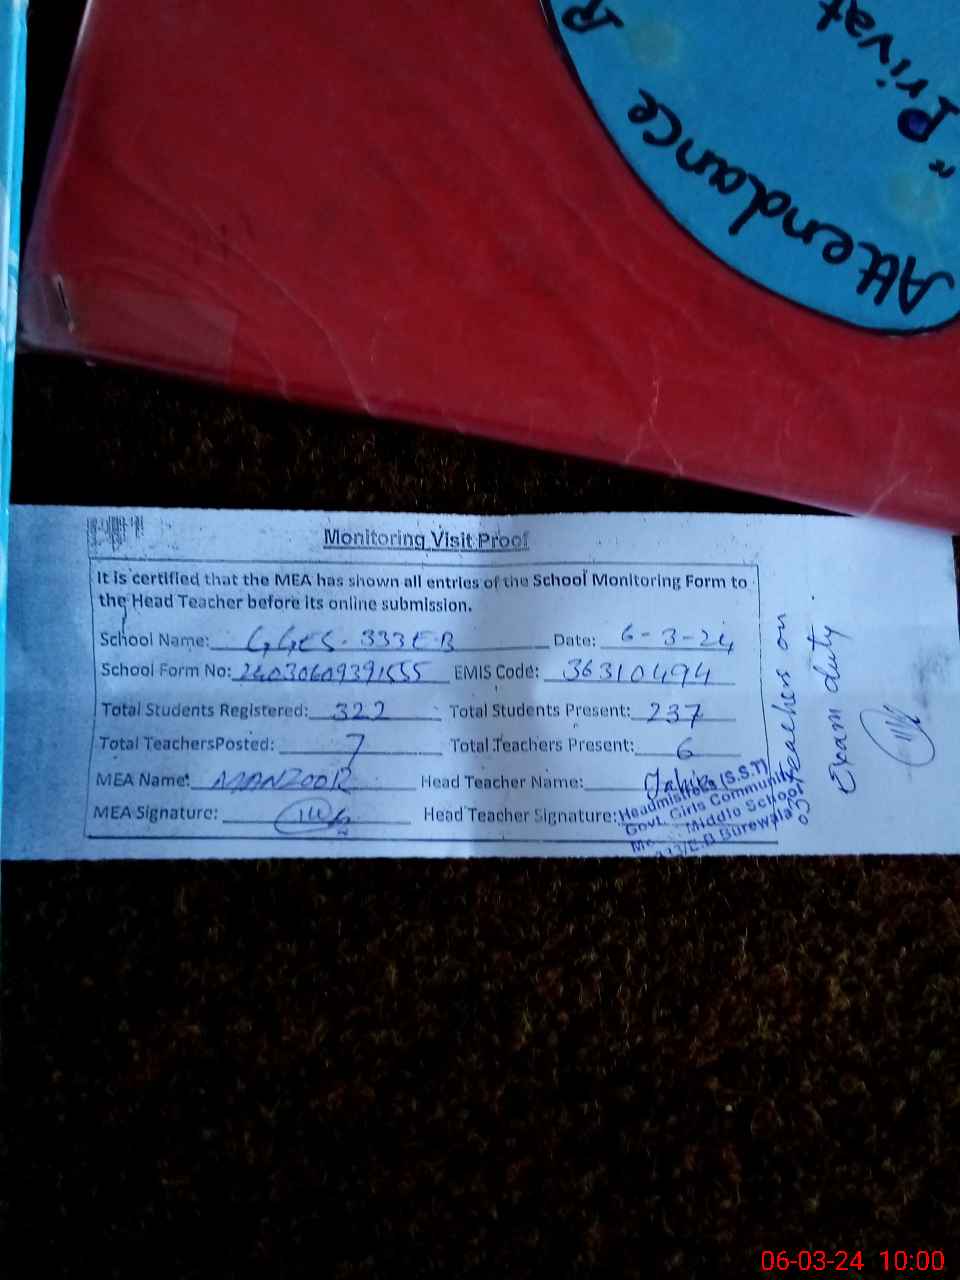 Attendance R
"Privat
Monitoring Visit Proof
It is certified that the MEA has shown all entries of the School Monitoring Form to
the Head Teacher before its online submission.
School Name: GGES. 333 E-B Date: 6-3-24
School Form No: EMIS Code: 36310494
Total Students Registered: 322 Total Students Present: 237
Total TeachersPosted: 7 Total Teachers Present: 6
MEA Name: MANZOOR Head Teacher Name:
MEA Signature: Head Teacher Signature:
Headmistress (S.S.T)
Govt. Girls Community
Middle School
333/E.B Burewala
teachers on
Exam duty
06-03-24 10:00